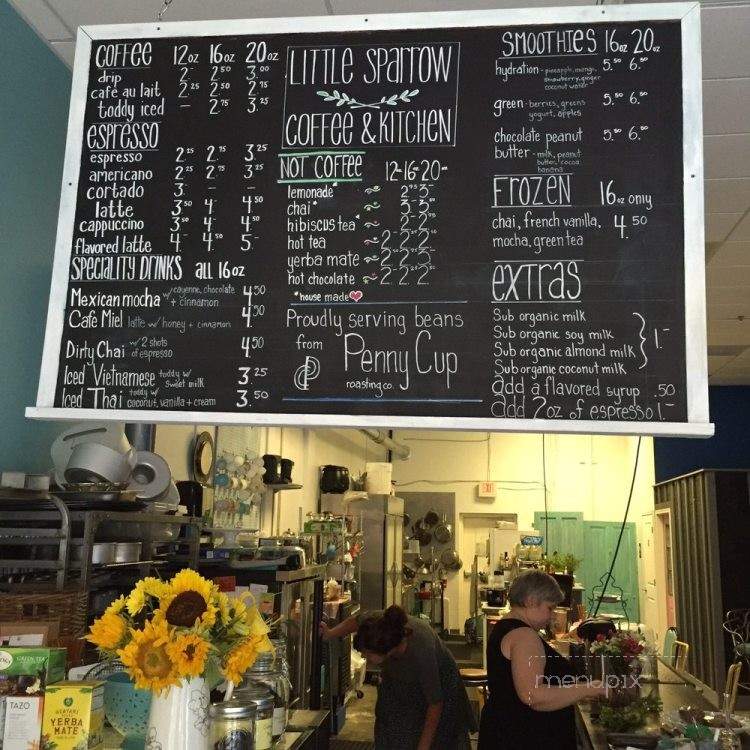 COFFEE 12oz 16oz 20oz
drip 2- 2.50 3.00
café au lait 2.25 2.50 2.75
toddy iced - 2.75 3.25
ESPRESSO
espresso 2.25 2.75 3.25
americano 2.25 2.75 3.25
cortado 3. - -
latte 3.50 4. 4.50
cappuccino 3.50 4. 4.50
flavored latte 4. 4.50 5-
SPECIALITY DRINKS all 16oz
Mexican mocha w/ cayenne, chocolate + cinnamon 4.50
Café Miel latte w/ honey + cinnamon 4.50
Dirty Chai w/ 2 shots of espresso 4.50
Iced Vietnamese toddy w/ sweet milk 3.25
Iced Thai toddy w/ coconut, vanilla + cream 3.50
LITTLE SPARROW
COFFEE & KITCHEN
NOT COFFEE 12-16-20-
lemonade*
chai*
hibiscus tea*
hot tea
yerba mate
hot chocolate
*house made
Proudly serving beans
from Penny Cup
roasting co.
SMOOTHIES 16oz 20oz
hydration - pineapple, mango, 5.50 6.50
strawberry, ginger
coconut water
green - berries, greens 5.50 6.50
yogurt, apples
chocolate peanut 5.50 6.50
butter - milk, peanut
butter, cocoa
banana
FROZEN 16oz only
chai, french vanilla, 4.50
mocha, green tea
extras
Sub organic milk
Sub organic soy milk
Sub organic almond milk } 1.-
Sub organic coconut milk
add a flavored syrup .50
add 2oz of espresso 1-
TAZO
GREEN TEA
GUAYAKI
YERBA
MATE
menupix